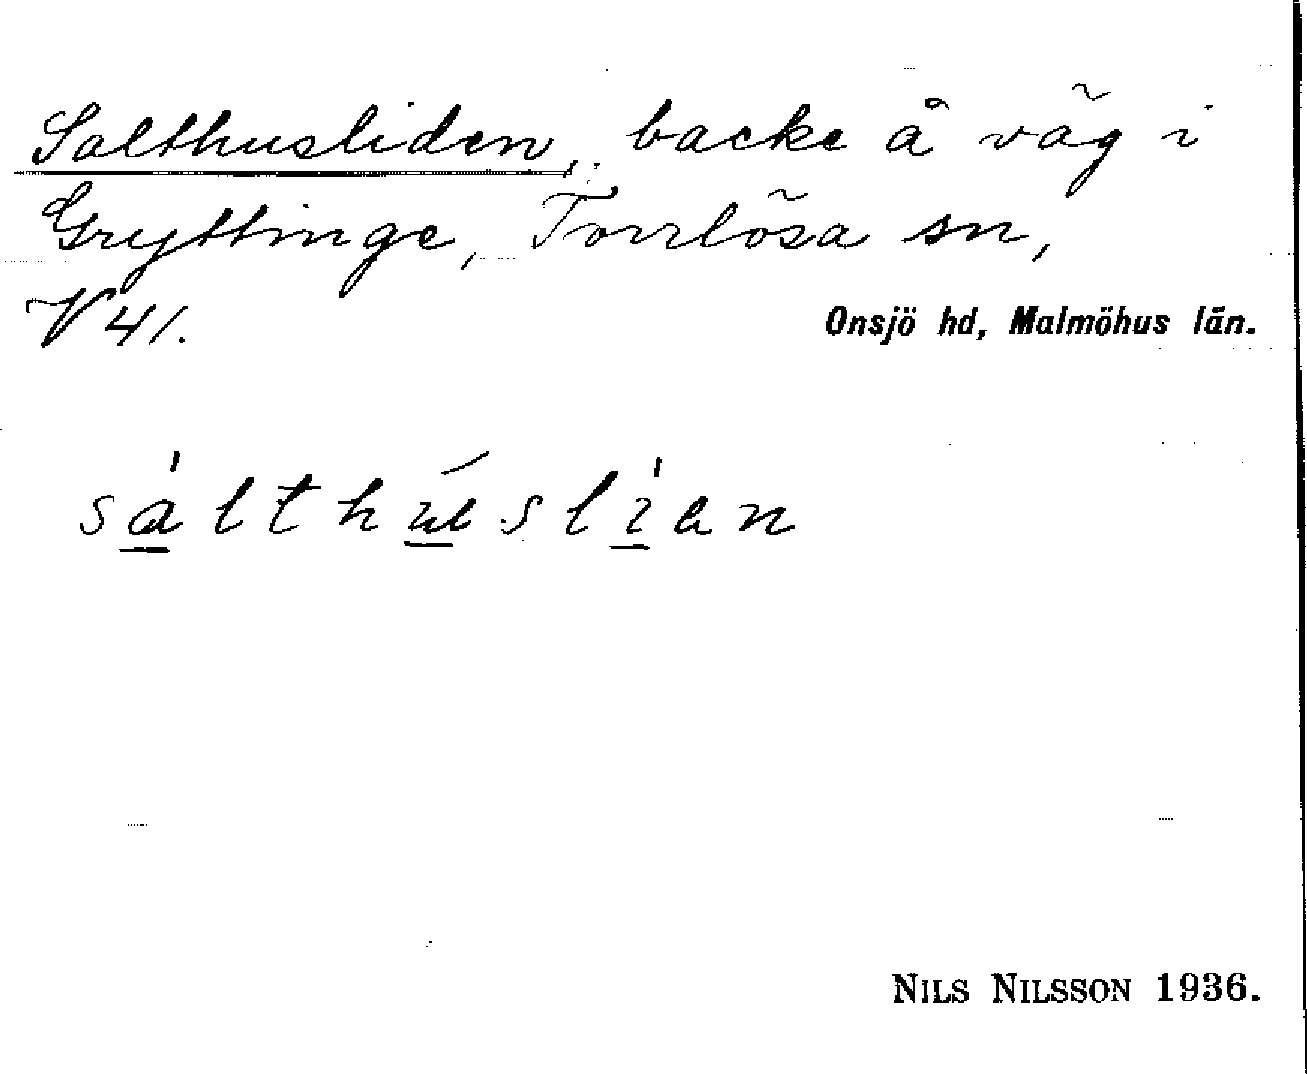 Salthusliden, backe å väg i
Gryttinge, Torrlösa sn,
V 41.
Onsjö hd, Malmöhus län.
sàlthúslìan
NILS NILSSON 1936.